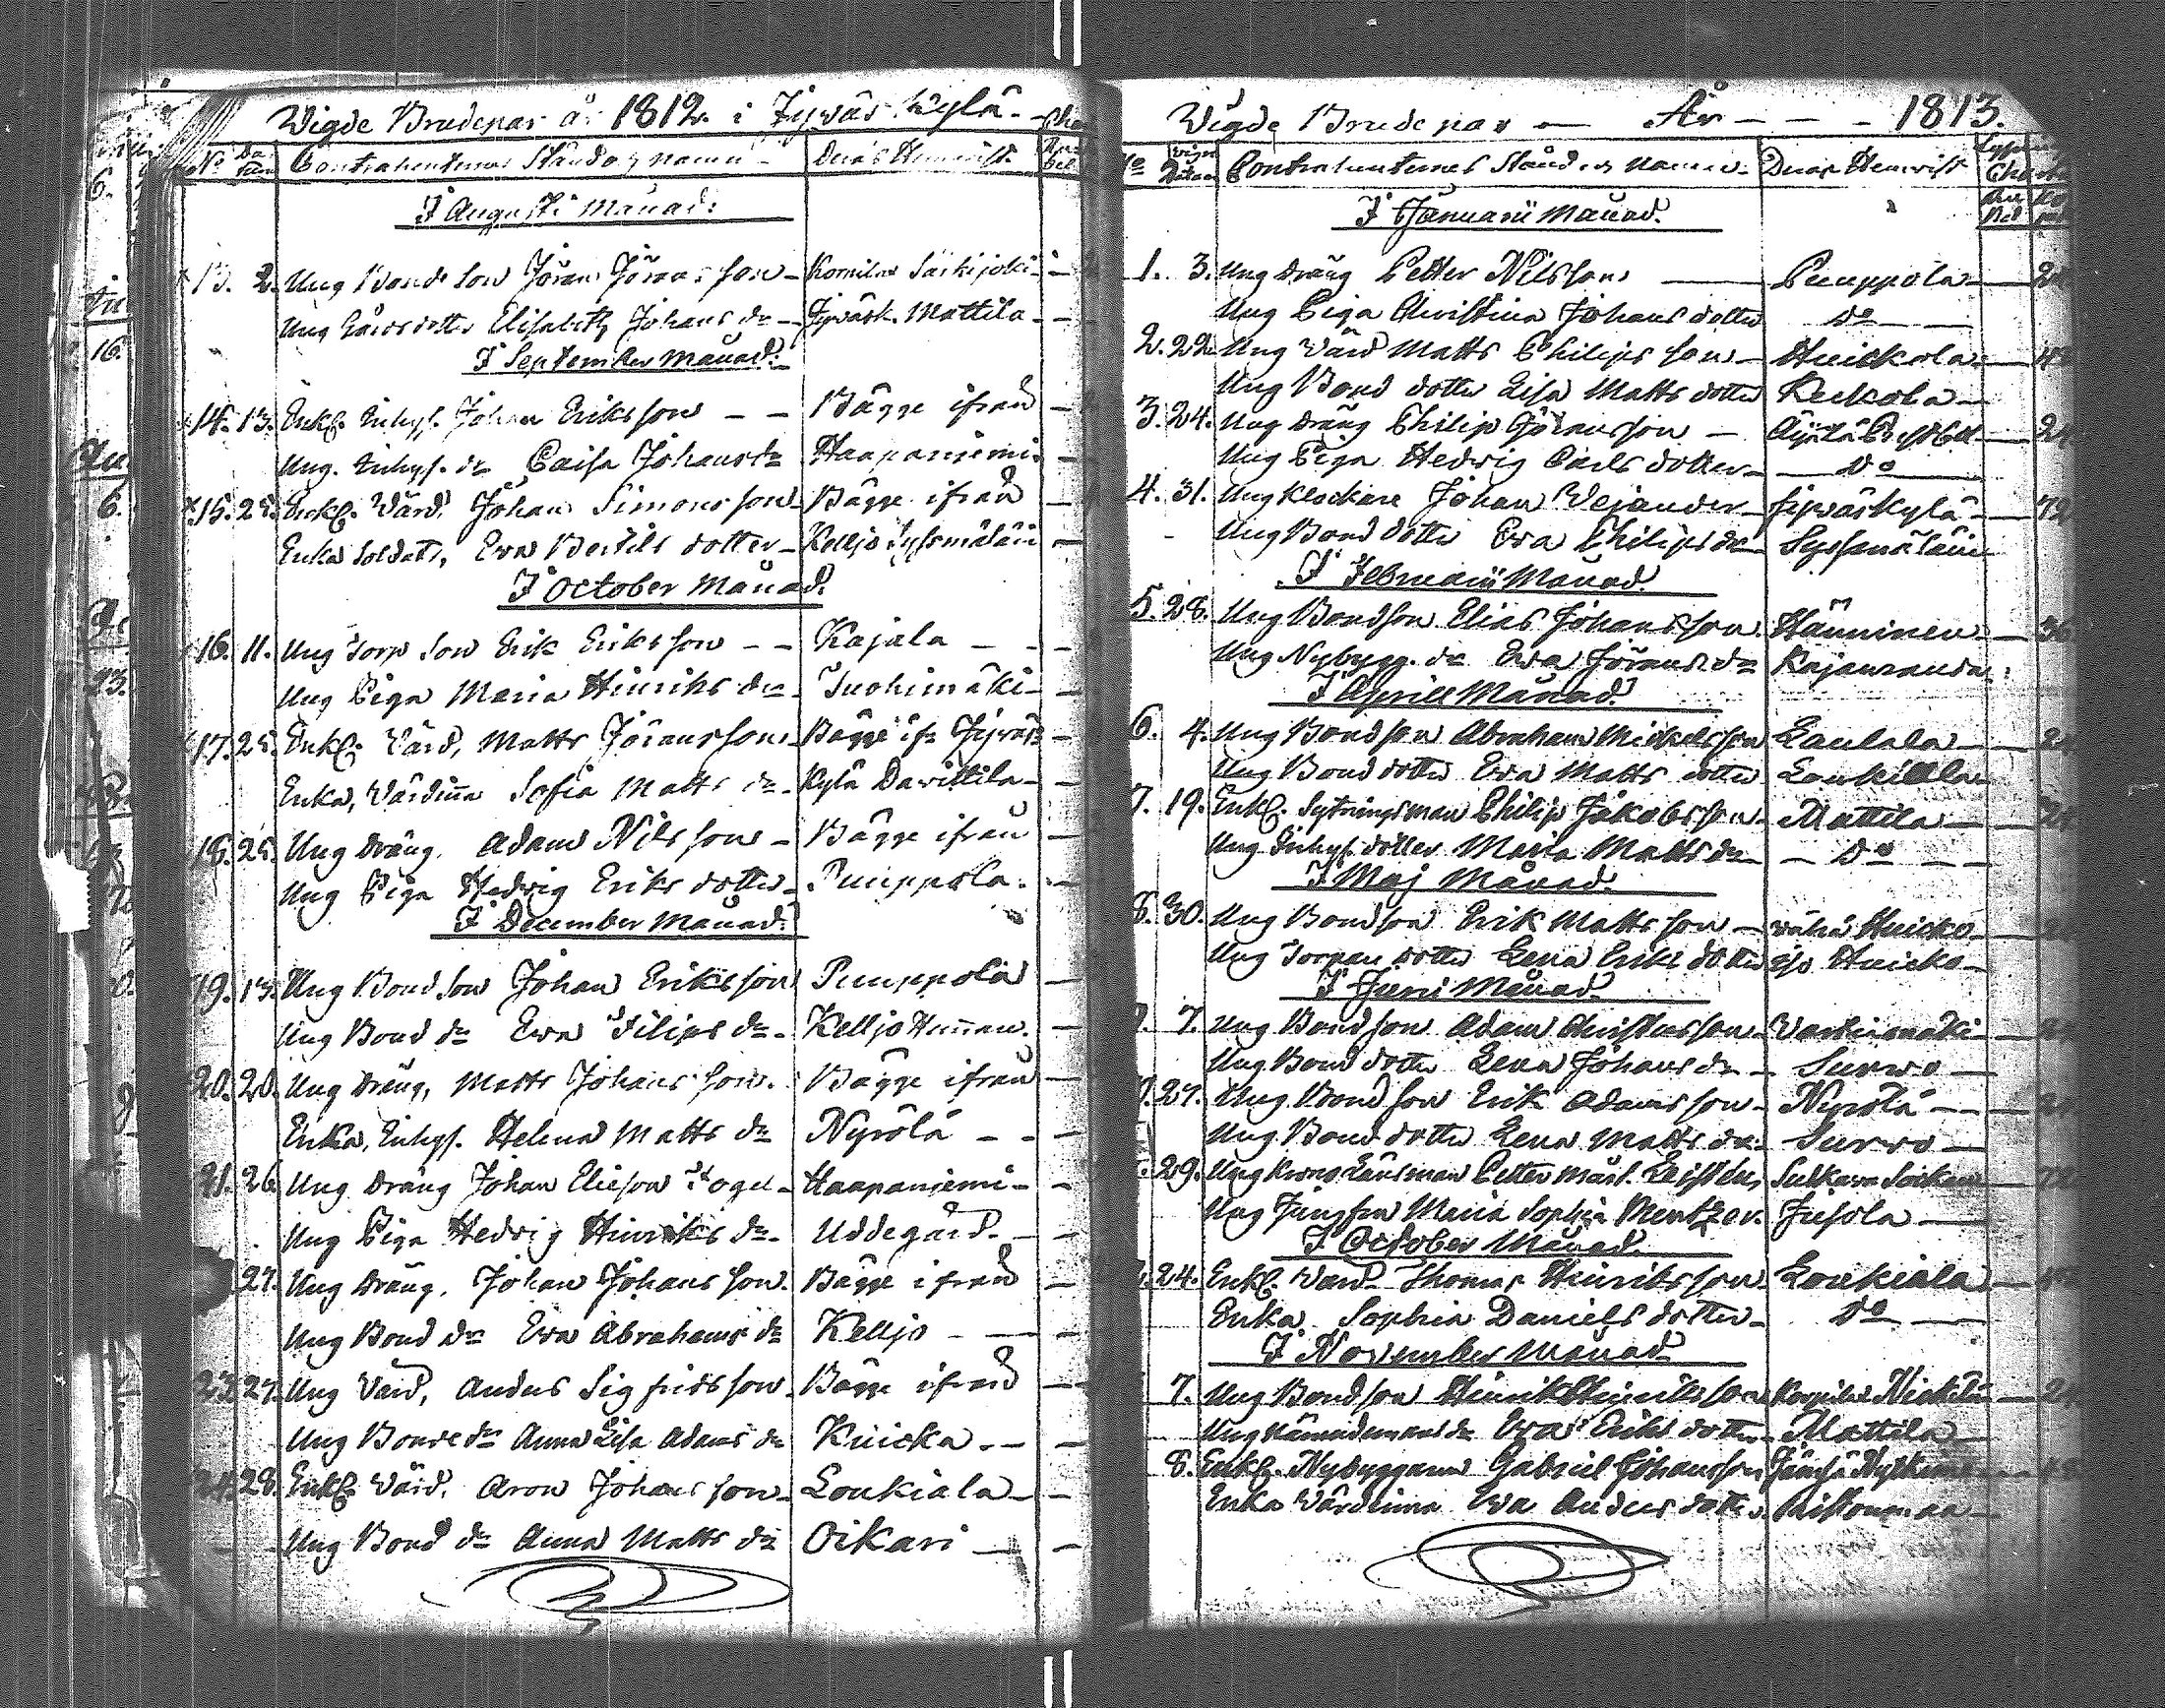 Wigde Brudepar år 1812. i Jywäskylä.
No Da tum Contrahenternes Stånd och namn Deras Hemvist.
I Augusti Månad:
13. 2. Ung Bonde son Jöran Jörans son Särkijoki
Ung dotter Elisabeth Johans dr Jywäsk. Mattila
I September Månad:
14. 13. Enkl. Inhys. Johan Eriksson Bägge ifrån
Ung. Inhys. dr Caisa Johans dr Haapaniemi
15. 25. Enkl. Wärd. Johan Simonsson Bägge ifrån
Enka Soldats, Ewa Bertils dotter Kelljo
I October Månad.
16. 11. Ung Torp son Erik Eriksson Kajala
Ung Piga Maria Hinriks dr Tuohimäki
17. 25. Enkl. Wärd, Matts Jöransson Bägge ifr Jywäs
Enka, Wärdinna Sofia Matts dr Kylä Dawittila
18. 25. Ung Dräng. Adam Nilsson Bägge ifrån
Ung Piga Hedwig Eriks dotter Puuppola.
I December Månad:
19. 13. Ung Bond son Johan Eriksson Puuppola
Ung Bond dr Ewa Filips dr Kelljo
20. 20. Ung Dräng, Matts Johans son. Bägge ifrån
Enka, Inhys. Helena Matts dr Nyrölä
21. 26. Ung Dräng Johan Elieson Haapaniemi
Ung Piga Hedvig Hinriks dr Uddegård.
27. Ung Dräng. Johan Johans son. Bägge ifrån
Ung Bond dr Ewa Abrahams dr Kelljo
23. 27. Ung Wärd, Anders Sigfridsson Bägge ifrån
Ung Bonde dr Anna Lisa Adams dr Kuicka
24. 28. Enkl. Wärd. Aron Johans son Loukiala
Ung Bond dr Anna Matts dr Oikari
Wigde Brudepar År 1813.
No Datum Contrahenternes Stånd och namn Deras Hemvist
I Januarii Månad.
1. 3. Ung Dräng Petter Nilsson Puuppola
Ung Piga Christina Johans dotter do
2. 22. Ung Wärd Matts Philips son Huickola
Ung Bond dotter Lisa Matts dotter Keckola
3. 24. Ung Dräng Philip Göransson
Ung Piga Hedwig Carls dotter do
4. 31. Ung Klockare Johan Wejander Jywäskylä
Ung Bond dotter Ewa Philips dr
I Februarii Månad.
5. 28. Ung Bondson Elias Johansson Hänninen
Ung Nybygg. dr Ewa Jörans dr Kajawranda
I Aprill Månad.
6. 4. Ung Bondson Abraham Mickelsson Laulala
Ung Bond dotter Ewa Matts dotter
7. 19. Enkl. Sytningsman Philip Jakobsson Mattila
Ung Inhys. dotter Maria Matts dr do
I Maj Månad.
8. 30. Ung Bondson Erik Matts son wähä
Ung Torpar dotter Lena Eriks dotter
I Juni Månad.
7. Ung Bondson Adam Christersson
Ung Bond dotter Lena Johans dr Surwo
27. Ung Bond son Erik Adams son Nyrölä
Ung Bond dotter Lena Matts dr Surwo
29. Ung Krono Länsman Petter Sulkawa Sockn
Ung Jungfru Maria Sophia Mentzer. Jusola
I October Månad.
24. Enkl. Wärd Thomas Hinriksson Loukiala
Enka Sophia Daniels dotter do
I November Månad.
7. Ung Bondson Hinrik Hinriksson
Ung Nämndemans dr Ewa Eriks dotter Mattila
8. Enkl. Nybyggaren Gabriel Johansson Jämsä
Enka Wärdinna Ewa Anders dotter